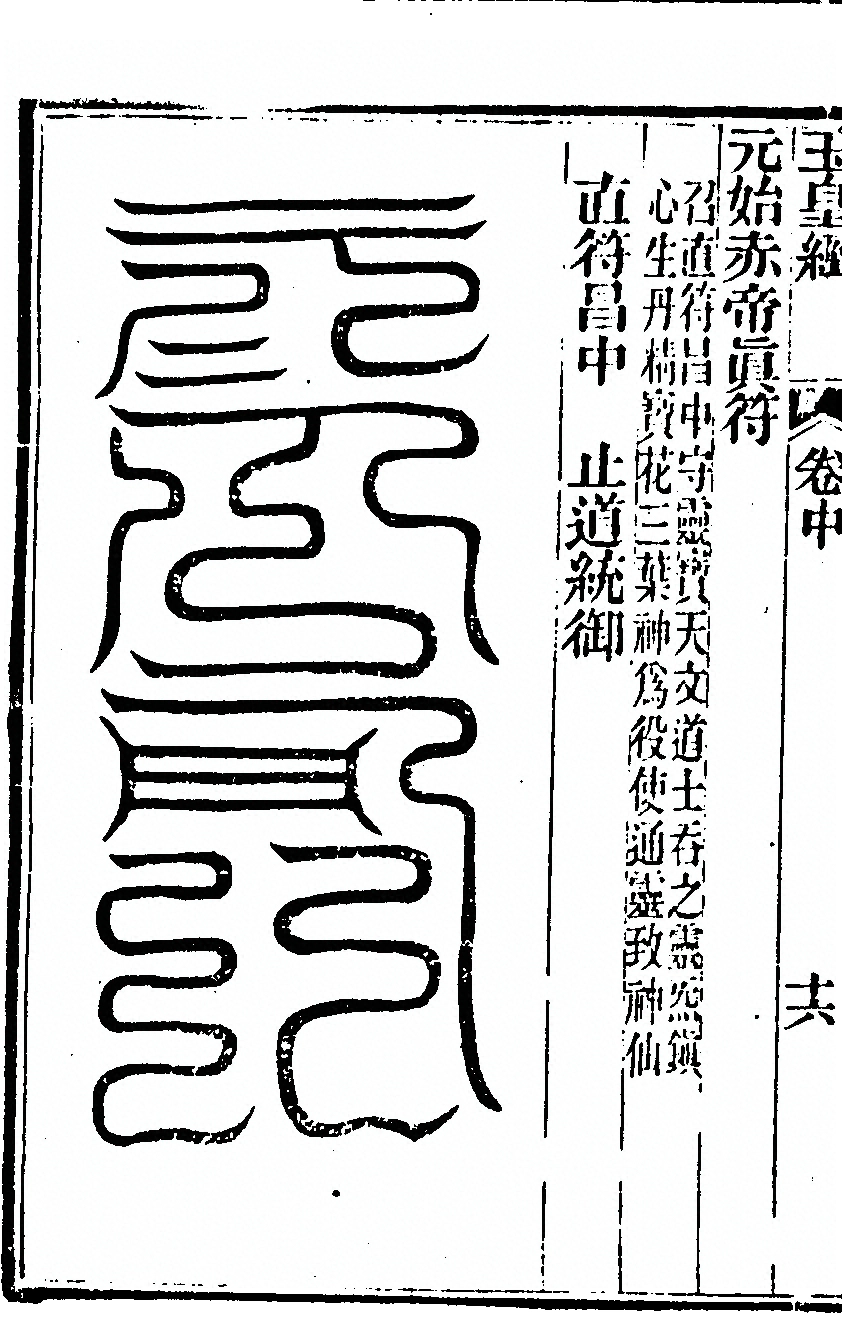 玉皇經
卷中
十六
元始赤帝眞符
召直符昌中守靈寶天文道士吞之靈炁鎭
心生丹精寶花三葉神爲役使通靈致神仙
直符昌中　止道統御